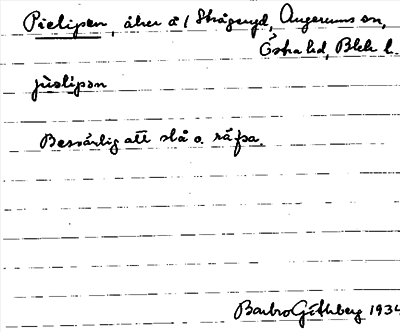 Pielipen, åker å 1 Strågeryd, Augerums sn,
Östra hd, Blek l.
pìəlipən
Besvärlig att slå o. räfsa.
Barbro Göthberg 1934